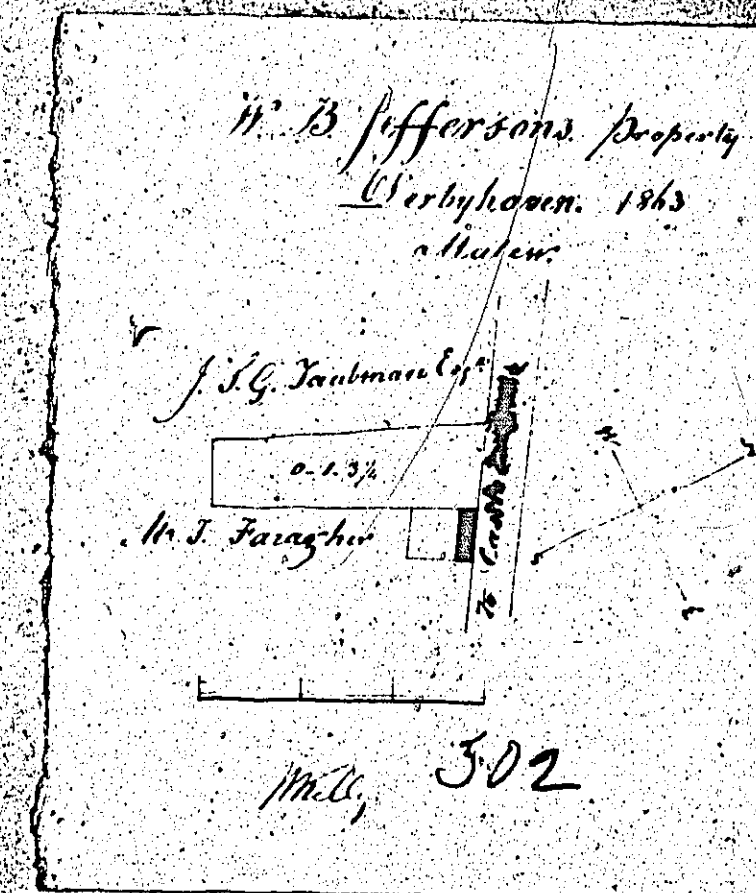 W. B. Jeffersons. Property
Derbyhaven. 1863
Malew.
J. S. G. Taubman Esqr.
0-1.3¼
Mr T. Faragher
To
502